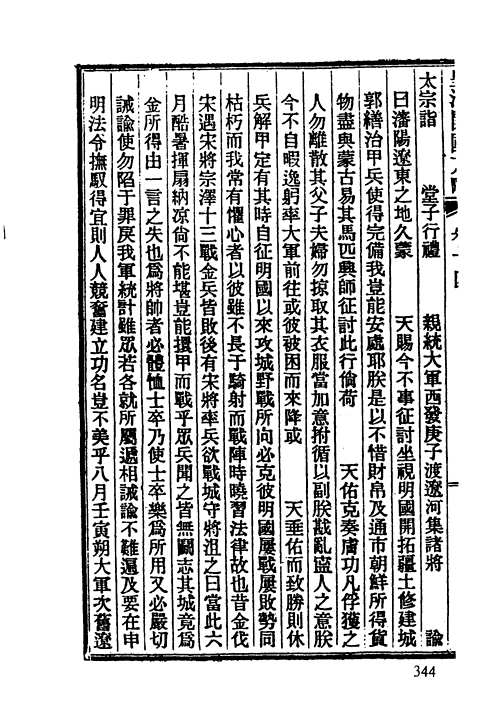 太宗詣 堂子行禮 親統大軍西發庚子渡遼河集諸將 諭
曰瀋陽遼東之地久蒙 天賜今不事征討坐視明國開拓疆土修建城
郭繕治甲兵使得完備我豈能安處耶朕是以不惜財帛及通市朝鮮所得貨
物盡與蒙古易其馬匹興師征討此行倘荷 天佑克奏膚功凡俘獲之
人勿離散其父子夫婦勿掠取其衣服當加意拊循以副朕戡亂盜人之意朕
今不自暇逸躬率大軍前往或彼被困而來降或 天垂佑而致勝則休
兵解甲定有其時自征明國以來攻城野戰所向必克彼明國屢戰屢敗勢同
枯朽而我常有懼心者以彼雖不長于騎射而戰陣時曉習法律故也昔金伐
宋遇宋將宗澤十三戰金兵皆敗後有宋將率兵欲戰城守將沮之曰當此六
月酷暑揮扇納凉尙不能堪豈能擐甲而戰乎眾兵聞之皆無鬭志其城竟爲
金所得由一言之失也爲將帥者必體恤士卒乃使士卒樂爲所用又必嚴切
誡諭使勿陷于罪戾我軍統計雖眾若各就所屬遞相誡諭不難遍及要在申
明法令撫馭得宜則人人競奮建立功名豈不美乎八月壬寅朔大軍次舊遼
344